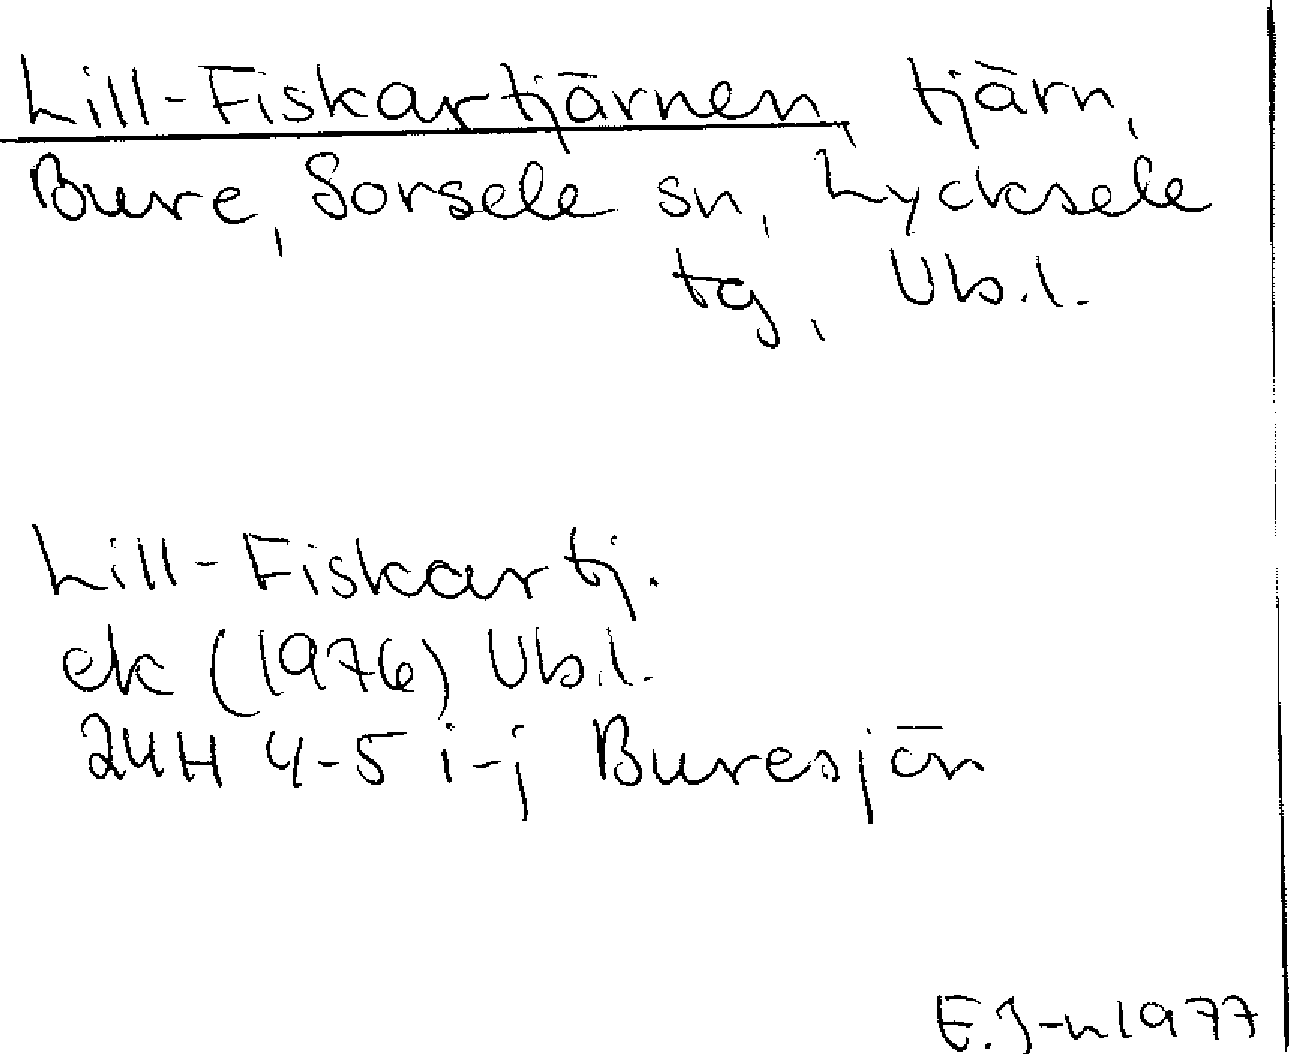 Lill-Fiskartjärnen, tjärn,
Bure, Sorsele sn, Lycksele
tg, Vb.l.
Lill-Fiskartj.
ek (1976) Vb.l.
24H 4-5 i-j Buresjön
E.J-n 1977